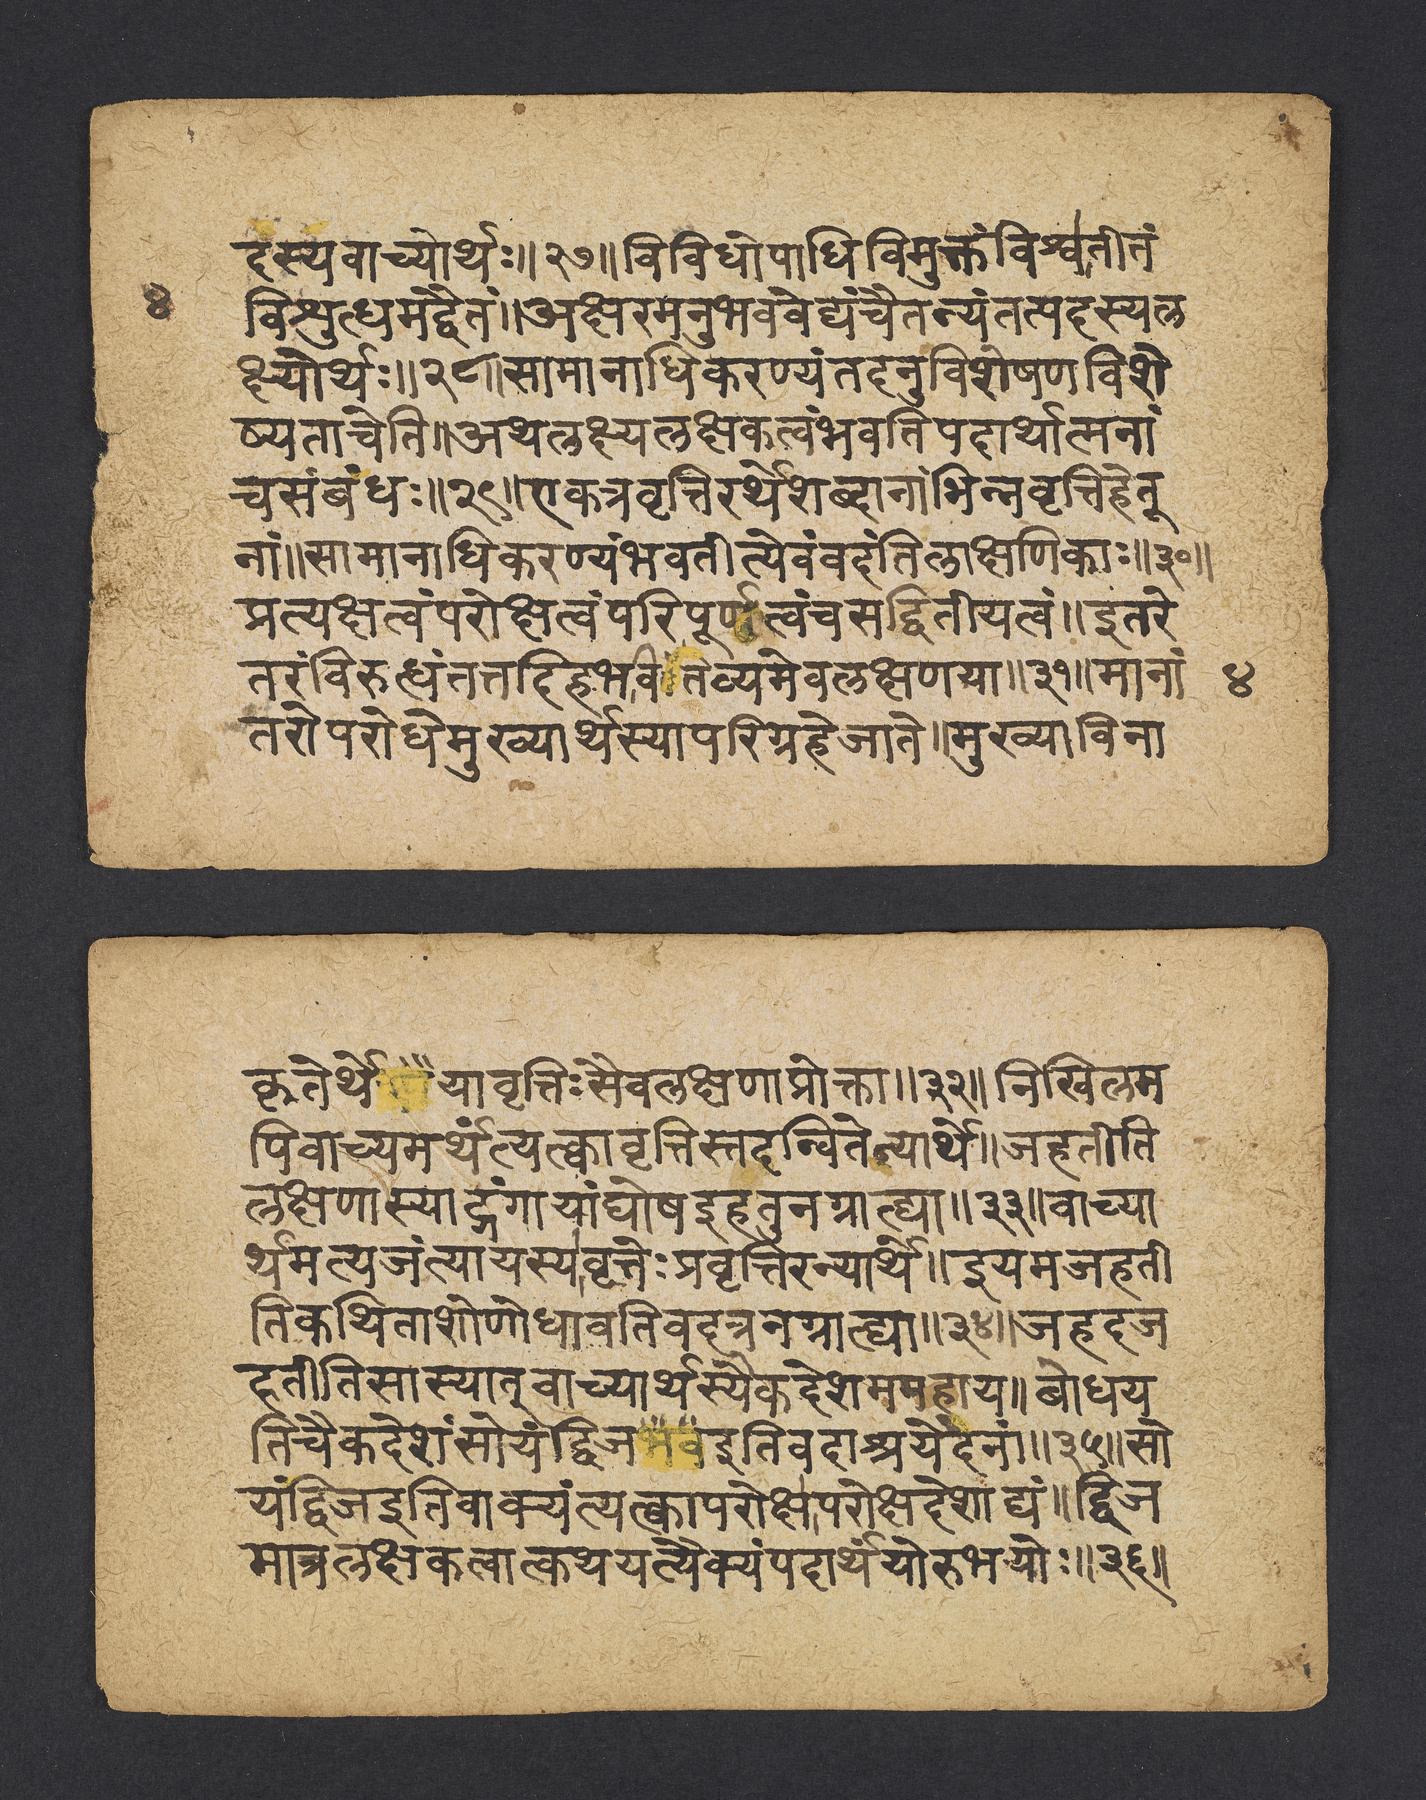 दस्यवाच्योर्थः॥२७॥विविधोपाधिविमुक्तंविश्वातीतं
४
विशुत्धमद्वैतं॥अक्षरमनुभववेद्यंचैतन्यंतत्पदस्यल
क्ष्योर्थः॥२८॥सामानाधिकरण्यंतदनुविशेषणविशे
ष्यताचेति॥अथलक्ष्यलक्षकत्वंभवतिपदार्थात्मनां
चसंबंधः॥२९॥एकत्रवृत्तिरर्थेशब्दानांभिन्नवृत्तिहेतू
नां॥सामानाधिकरण्यंभवतीत्येवंवदंतिलाक्षणिकाः॥३०॥
प्रत्यक्षत्वंपरोक्षत्वंपरिपूर्णत्वंचसद्वितीयत्वं॥इतरे
तरंविरुत्धंतत्तदिहभवितव्यमेवलक्षणया॥३१॥मानां
४
तरोपरोधेमुख्यार्थस्यापरिग्रहेजाते॥मुख्याविना
कृतेर्थेयावृत्तिःसैवलक्षणाप्रोक्ता॥३२॥निखिलम
पिवाच्यमर्थंत्यत्क्वावृत्तिस्तदन्वितेन्यार्थे॥जहतीति
लक्षणास्याद्गंगायांघोषइहतुनग्राल्द्या॥३३॥वाच्या
र्थमत्यजंत्यायस्यवृत्तेःप्रवृत्तिरन्यार्थे॥इयमजहती
तिकथिताशोणोधावतिवदत्रनग्राल्द्या॥३४॥जहदज
हतीतिसास्यातूवाच्यार्थस्यैकदेशमपहाय॥बोधय
तिचैकदेशंसोयंद्विजइतिवदाश्रयेदेनां॥३५॥सो
यंद्विजइतिवाक्यंत्यत्क्वापरोक्षापरोक्षदेशाद्यं॥द्विज
मात्रलक्षकत्वात्कथयत्यैक्यंपदार्थयोरुभयोः॥३६॥